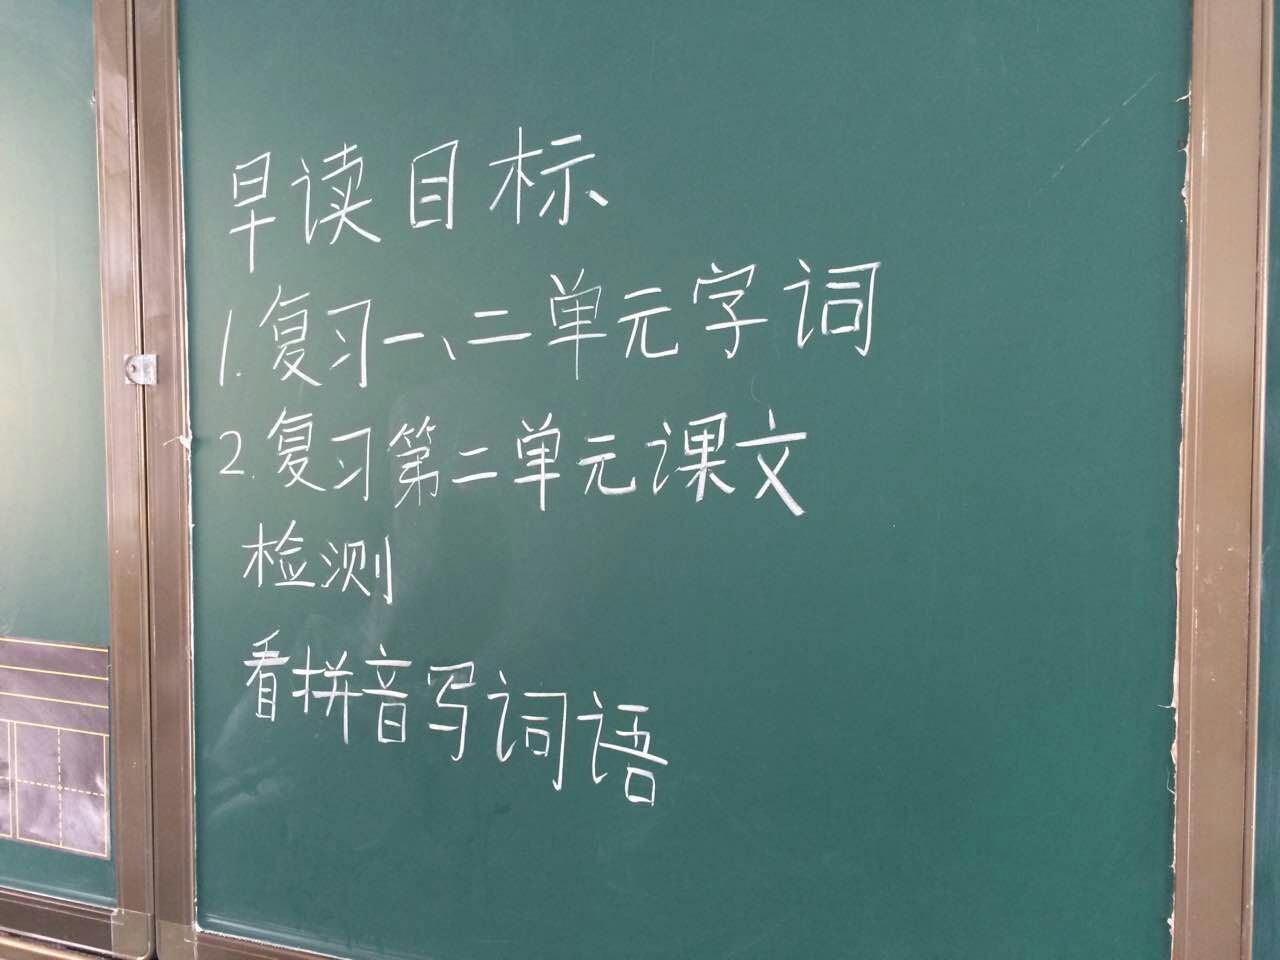 早读目标
1.复习一、二单元字词
2.复习第二单元课文
检测
看拼音写词语